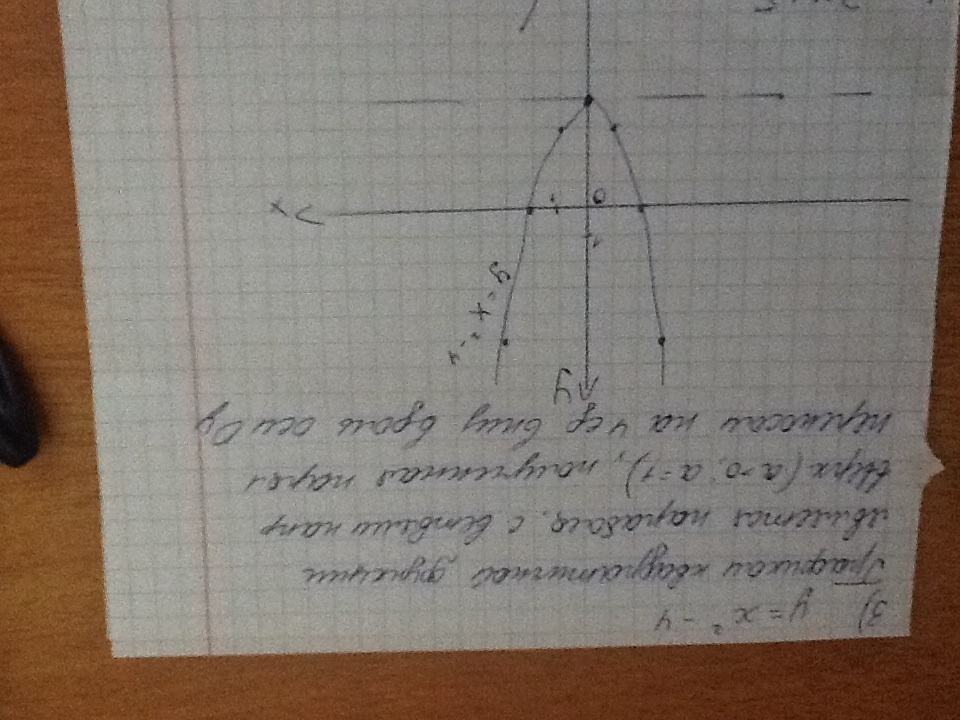 3) y = x² - 4
Графиком квадратичной функции
является парабола, с ветвями напр
вверх (a>0; a=1), полученная парал
переносом на 4 ед вниз вдоль оси Oy
y
y = x² - 4
1
0
1
x